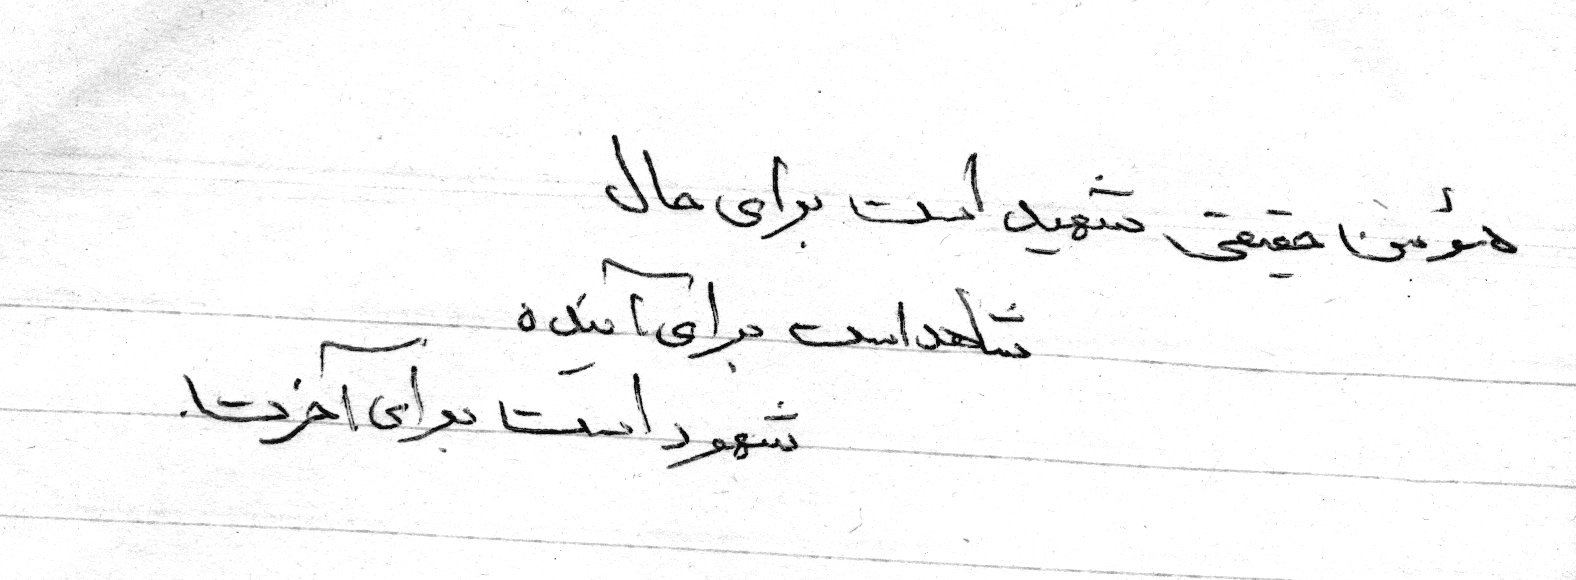 مؤمن حقیقی شهید است برای حال
شاهد است برای آینده
شهود است برای آخرت.